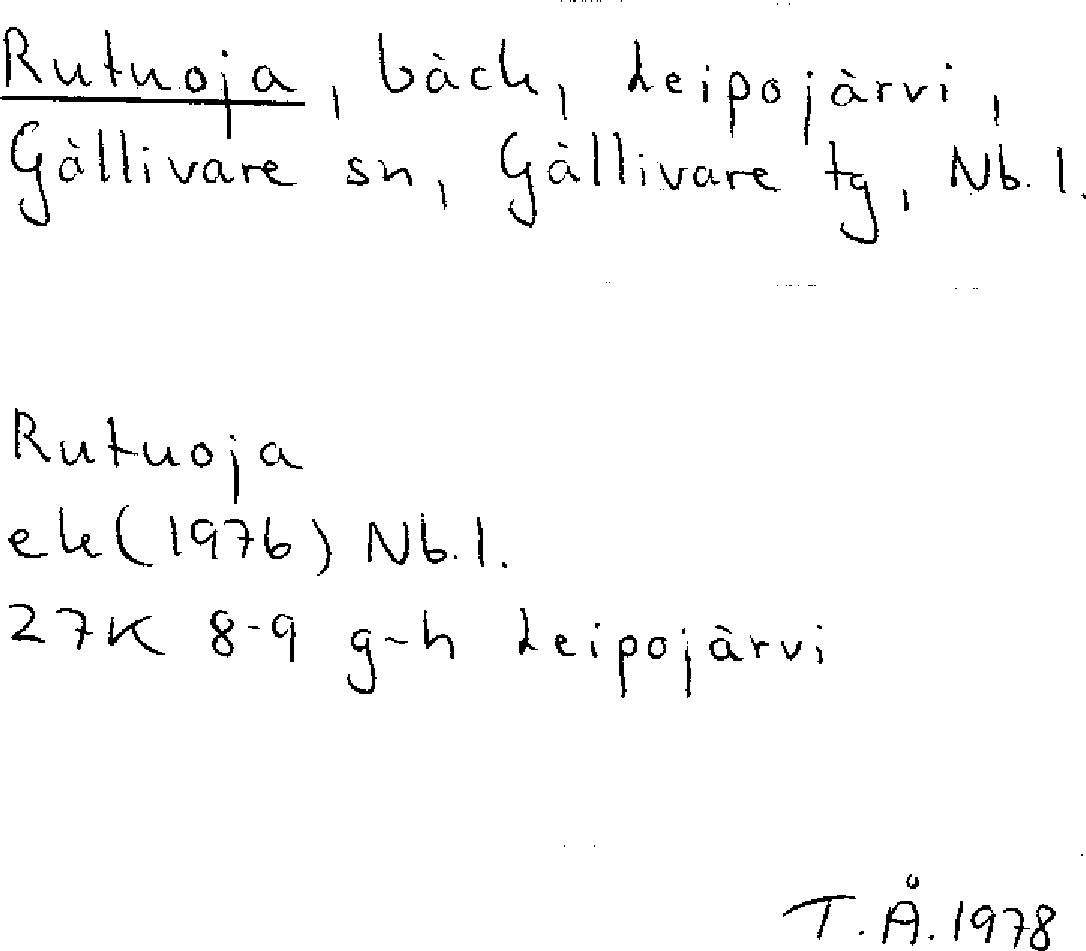 Rutuoja, bäck, Leipojärvi,
Gällivare sn, Gällivare tg, Nb. l.
Rutuoja
ek (1976) Nb. l.
27K 8-9 g-h Leipojärvi
T.Å. 1978